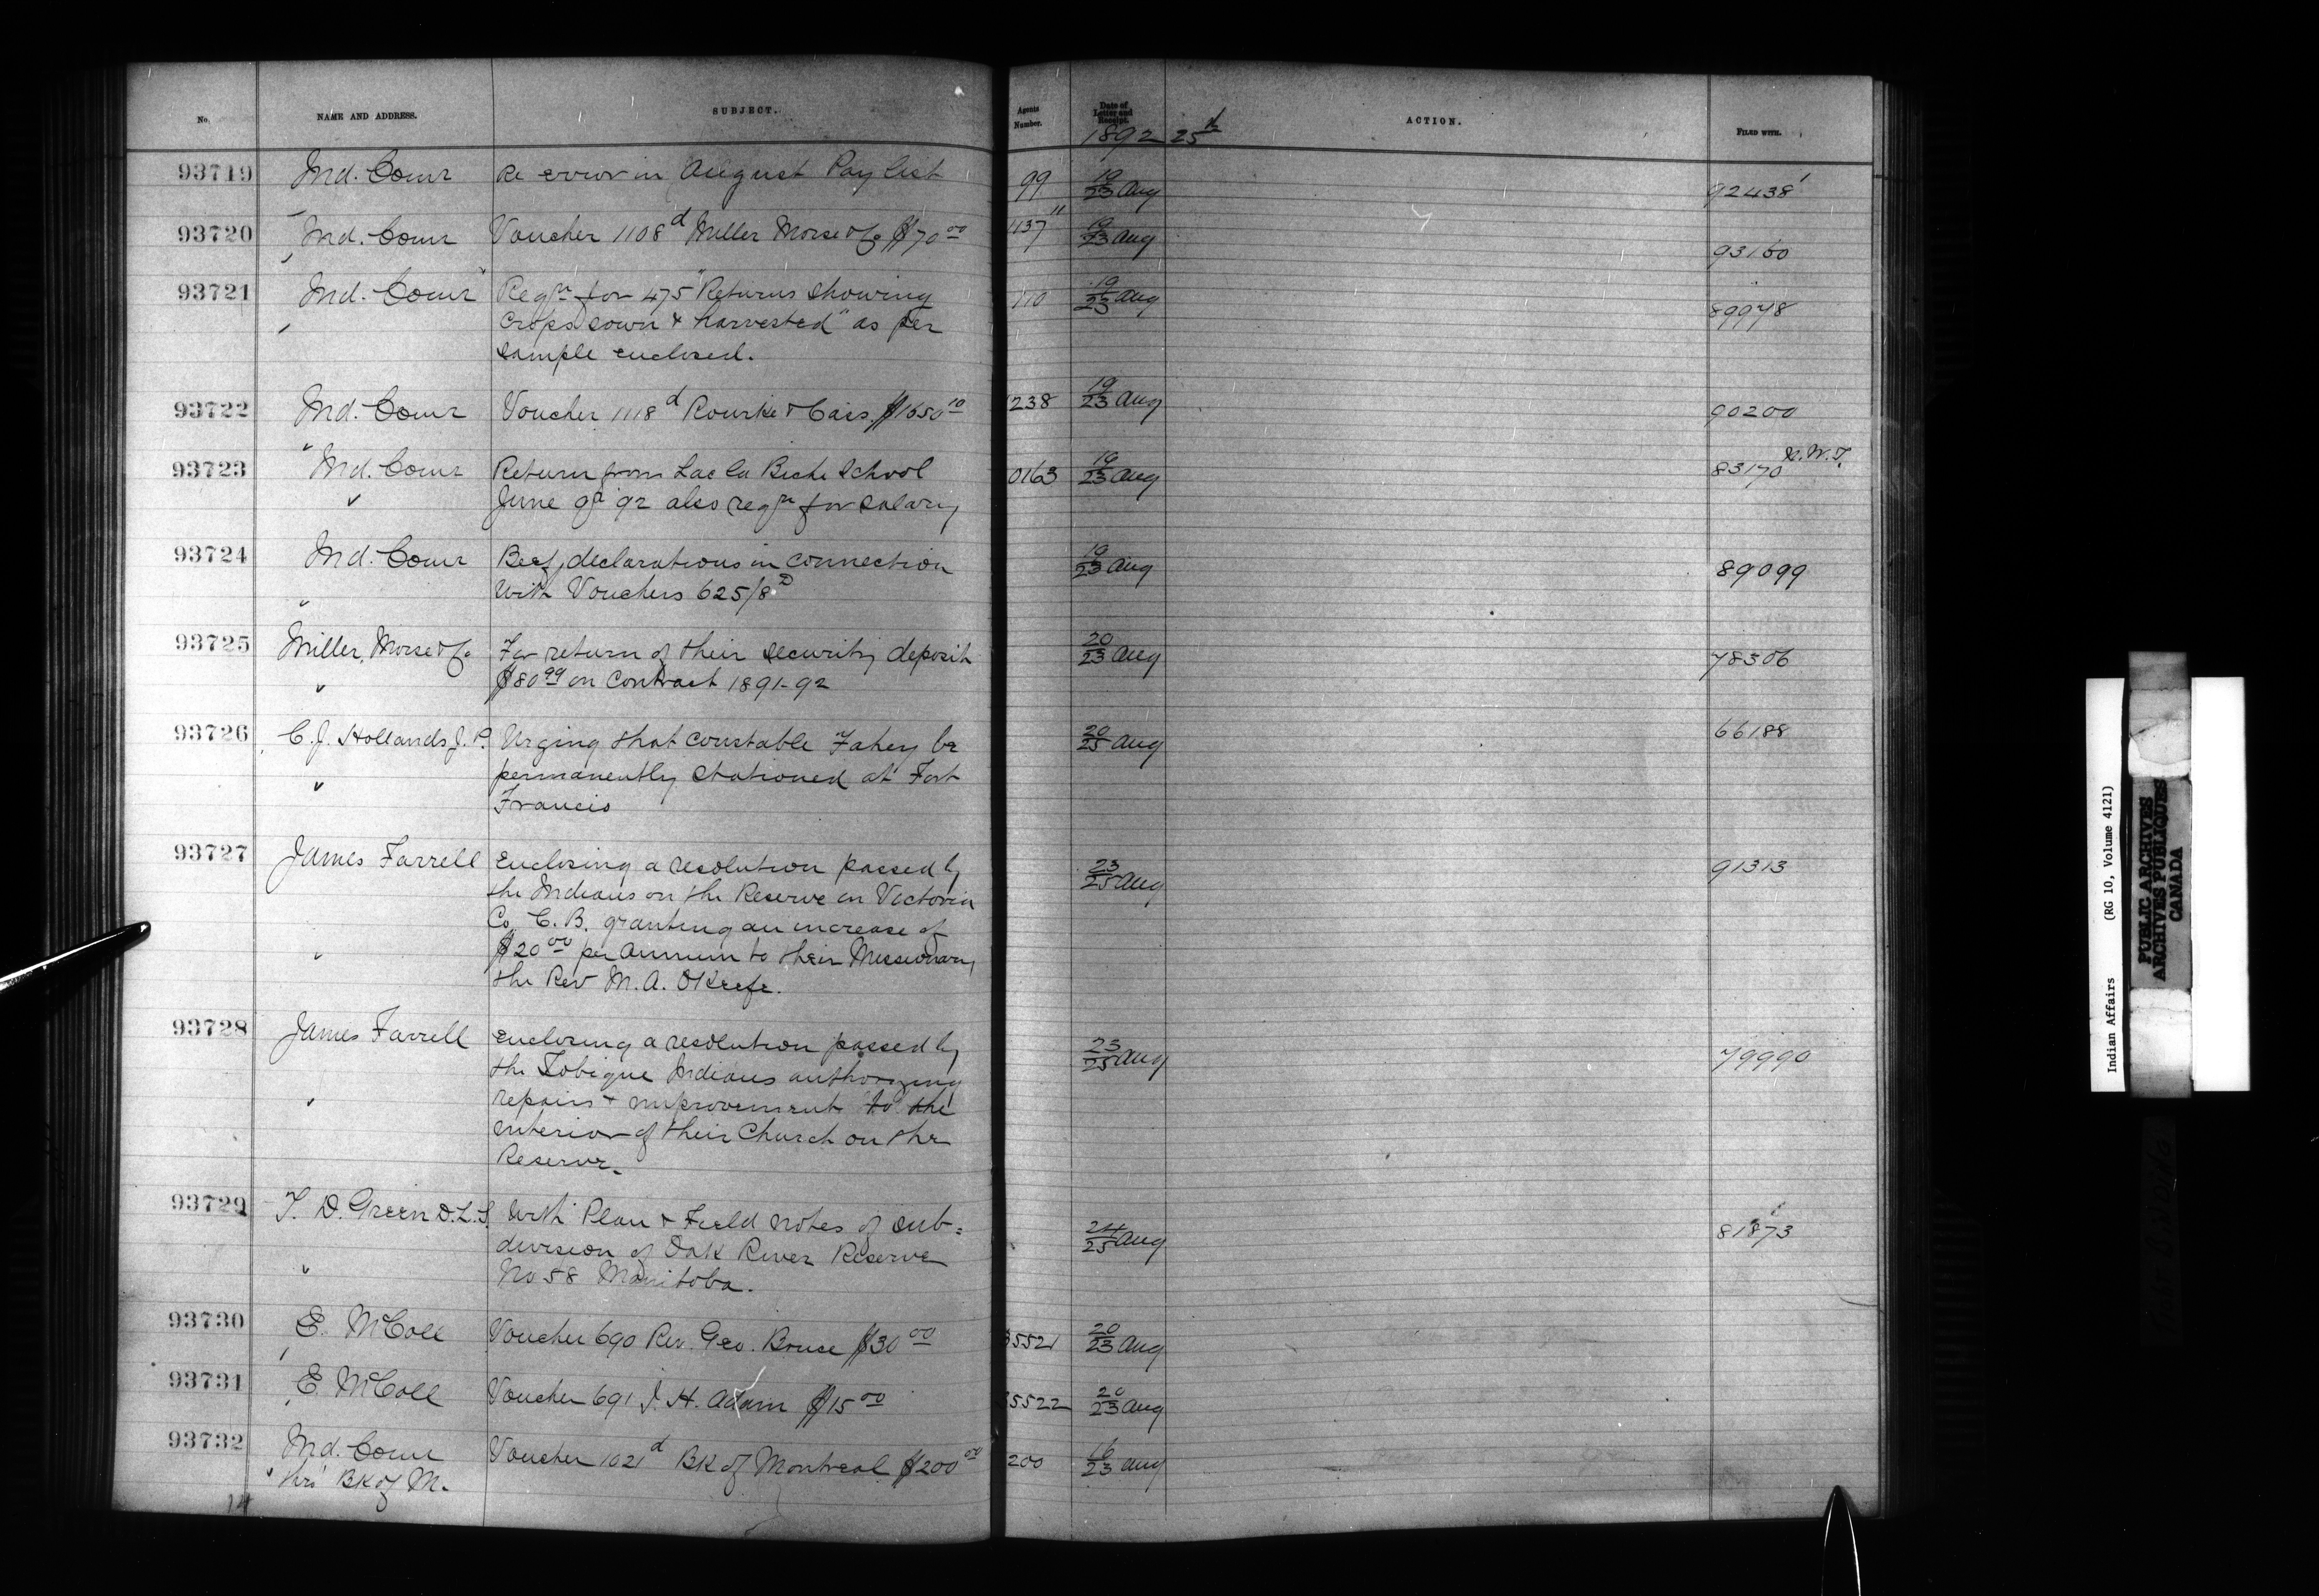 No. NAME AND ADDRESS. SUBJECT. Agents Number. Date of Letter and Receipt. ACTION. FILED WITH.
1892 25th
93719 Ind. Comr Re error in August Pay list 99 19/23 Aug 92438
93720 Ind. Comr Voucher 1108d Miller Morse & Co $70.00 1137 19/23 Aug 93160
93721 Ind. Comr Reqn for 475 "Returns showing 110 19/23 Aug 89978
crops sown & harvested" as per
sample enclosed.
93722 Ind. Comr Voucher 1118d Rourke & Cass $1650.10 238 19/23 Aug 90200
93723 Ind. Comr Return from Lac la Biche School 0163 19/23 Aug 83170 N.W.T.
June qr 92 also reqn for salary
93724 Ind. Comr Beef declarations in connection 19/23 Aug 89099
with Vouchers 625/8D
93725 Miller, Morse & Co For return of their security deposit 20/23 Aug 78306
$80.99 on Contract 1891-92
93726 C. J. Hollands J. P. Urging that constable Fahey be 20/25 Aug 66188
permanently stationed at Fort
Francis
93727 James Farrell Enclosing a resolution passed by 23/25 Aug 91313
the Indians on the Reserve in Victoria
Co. C. B. granting an increase of
$20.00 per annum to their Missionary
the Rev M. A. OKeefe.
93728 James Farrell Enclosing a resolution passed by 23/25 Aug 79990
the Tobique Indians authorizing
repairs & improvement to the
interior of their Church on the
Reserve.
93729 T. D. Green D.L.S. With Plan & Field notes of sub=
division of Oak River Reserve 24/25 Aug 81873
No 58 Manitoba.
93730 E. McColl Voucher 690 Rev. Geo. Bruce $30.00 5521 20/23 Aug
93731 E. McColl Voucher 691 J. H. Adam $15.00 5522 20/23 Aug
93732 Ind. Comr Voucher 1021d Bk of Montreal $200.00 200 16/23 Aug
thro' Bk of M.
14
Indian Affairs (RG 10, Volume 4121)
PUBLIC ARCHIVES
ARCHIVES PUBLIQUES
CANADA